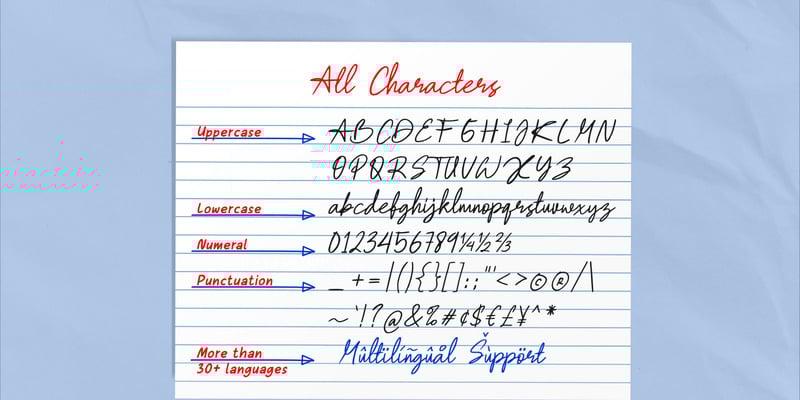 All Characters
Uppercase
A B C D E F G H I J K L M N
O P Q R S T U V W X Y Z
Lowercase
abcdefghijklmnopqrstuvwxyz
Numeral
0123456789¼½⅔
Punctuation
_ + = | ( ) { } [ ] : ; " ' < > © ® / \
~ ` ! ? @ & % # ¢ $ € £ ¥ ^ *
More than
30+ languages
Múltïlíñgûål Šùppört